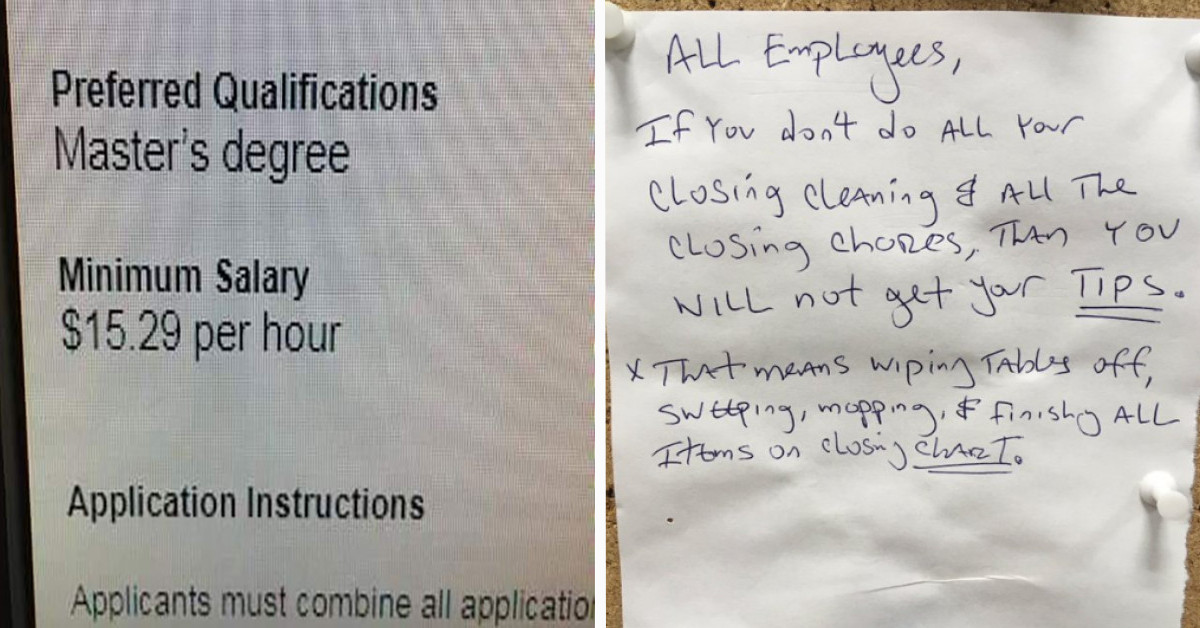 Preferred Qualifications
Master's degree
Minimum Salary
$15.29 per hour
Application Instructions
Applicants must combine all
ALL Employees,
If You don't do ALL Your
Closing Cleaning & ALL The
Closing Chores, Than YOU
WILL not get your TIPS.
x That means wiping Tables off,
sweeping, mopping, & finishg ALL
Items on closing CHART.